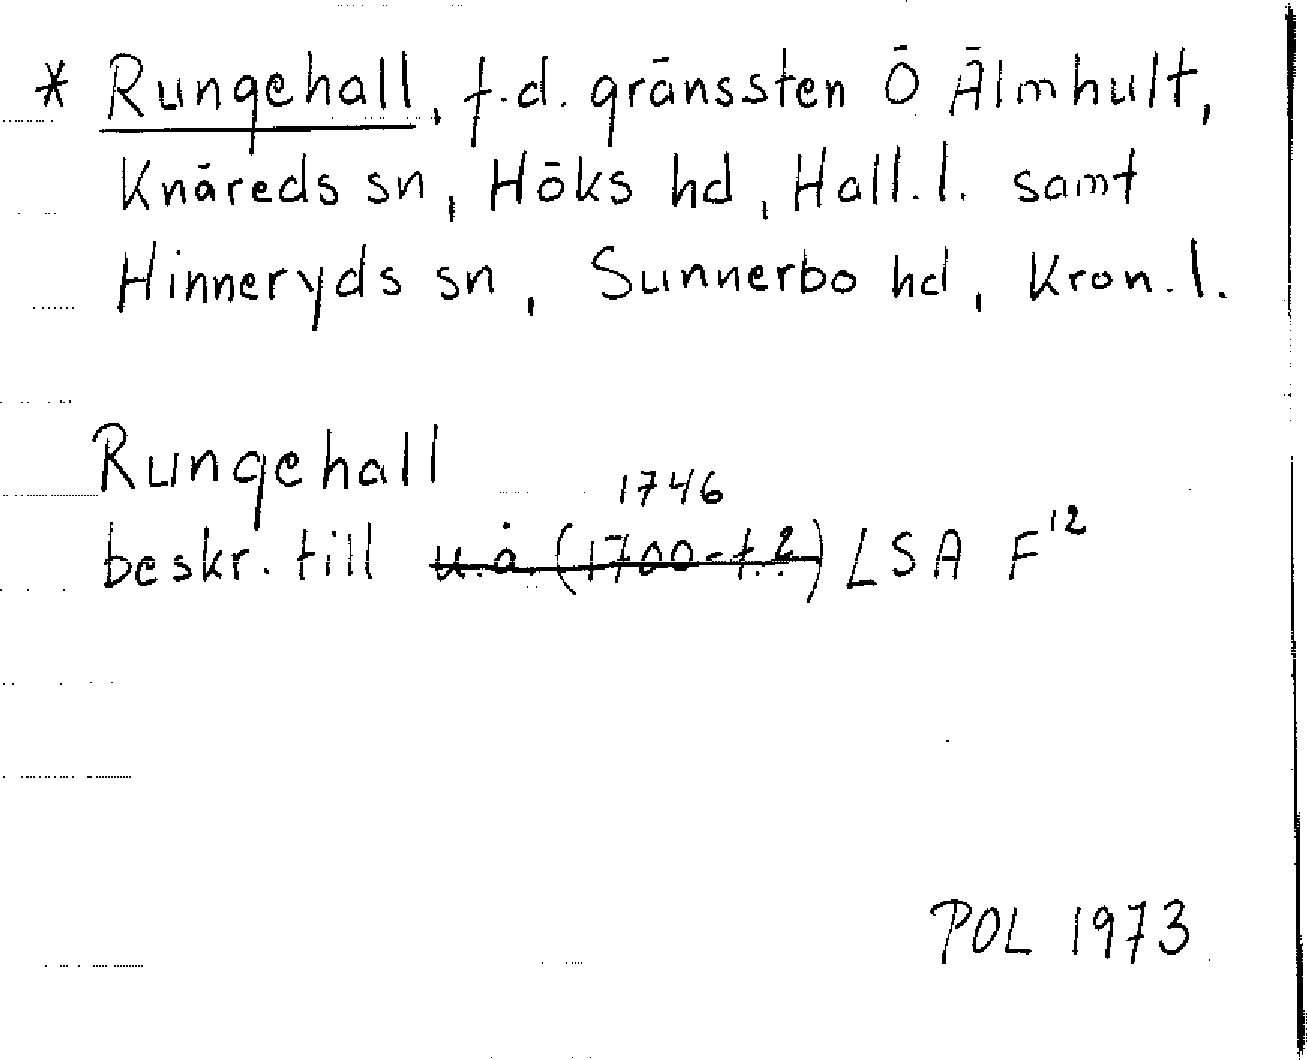 * Rungehall, f.d. gränssten Ö Älmhult,
Knäreds sn, Höks hd, Hall.l. samt
Hinneryds sn, Sunnerbo hd, Kron.l.
Rungehall
1746
beskr. till u.å. (1700-t.?) LSA F¹²
POL 1973